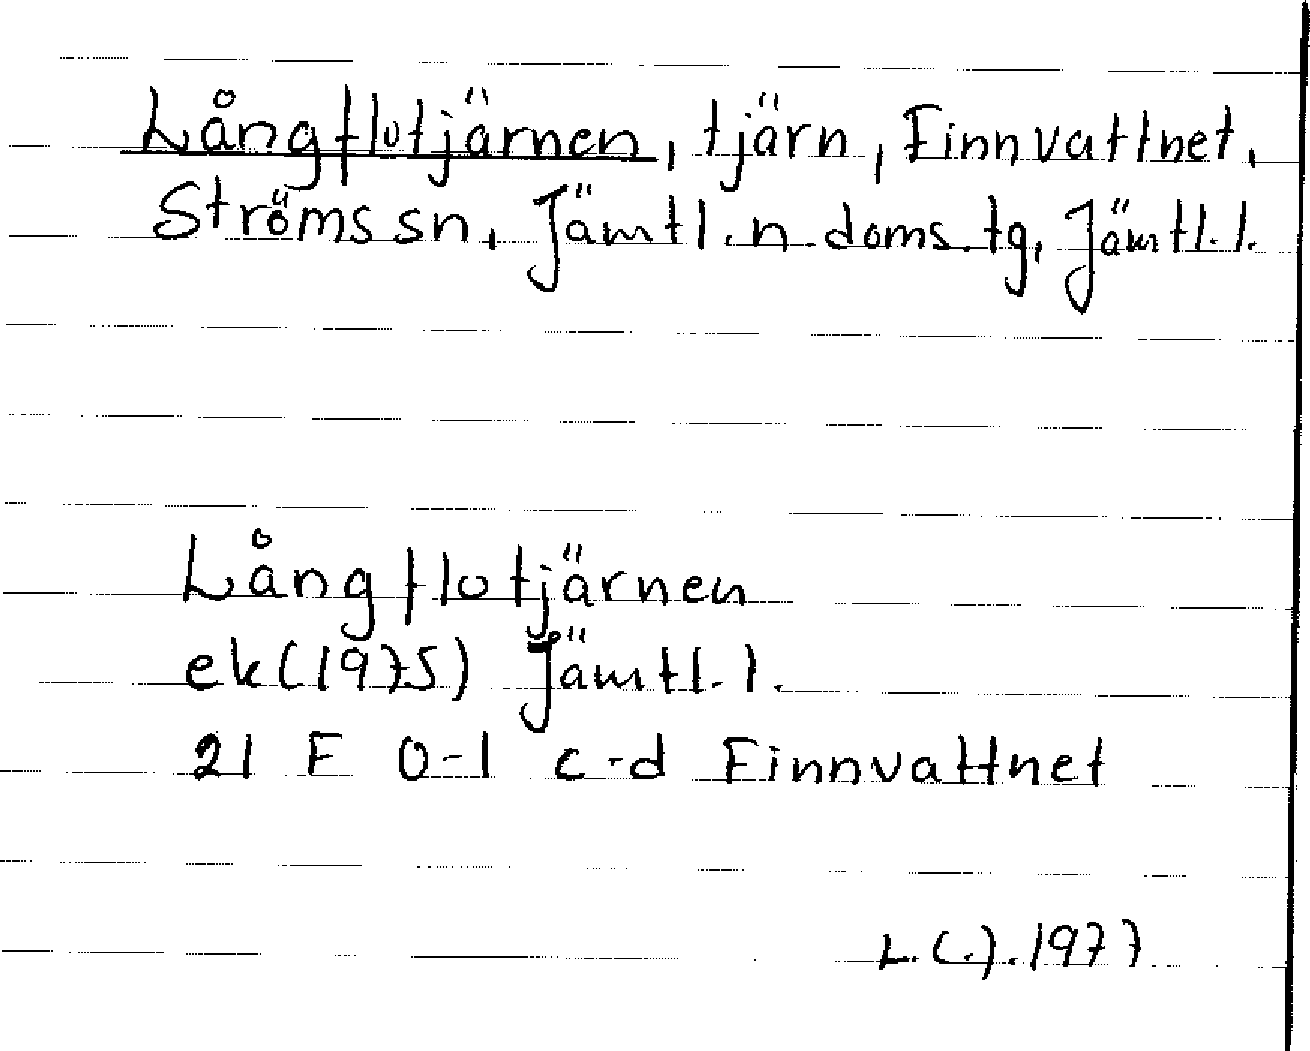 Långflotjärnen, tjärn, Finnvattnet,
Ströms sn, Jämtl. n. doms. tg, Jämtl. l.
Långflotjärnen
ek (1975) Jämtl. l.
21 F 0-1 c-d Finnvattnet
1977